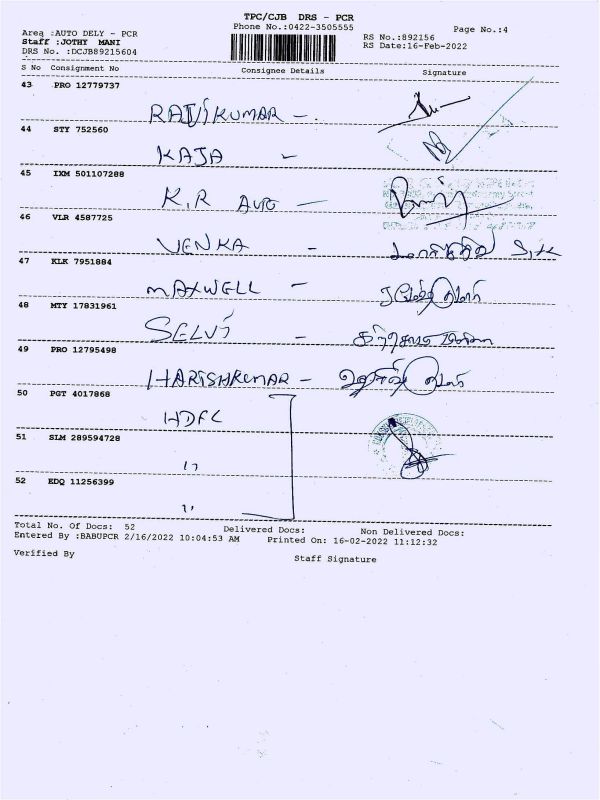 TPC/CJB DRS - PCR
Area :AUTO DELY - PCR Phone No.:0422-3505555 Page No.:4
Staff :JOTHY MANI RS No.:892156
DRS No. :DCJB89215604 RS Date:16-Feb-2022
S No Consignment No Consignee Details Signature
43 PRO 12779737
RAJJIKUMAR -.
44 STY 752560
KAJA -
45 IXM 501107288
K.R AUTO -
46 VLR 4587725
VENKA -
47 KLK 7951884
MAXWELL -
48 MTY 17831961
SELVI -
49 PRO 12795498
HARISHKUMAR -
50 PGT 4017868
HDFC
51 SLM 289594728
"
52 EDQ 11256399
"
Total No. Of Docs: 52 Delivered Docs: Non Delivered Docs:
Entered By :BABUPCR 2/16/2022 10:04:53 AM Printed On: 16-02-2022 11:12:32
Verified By Staff Signature